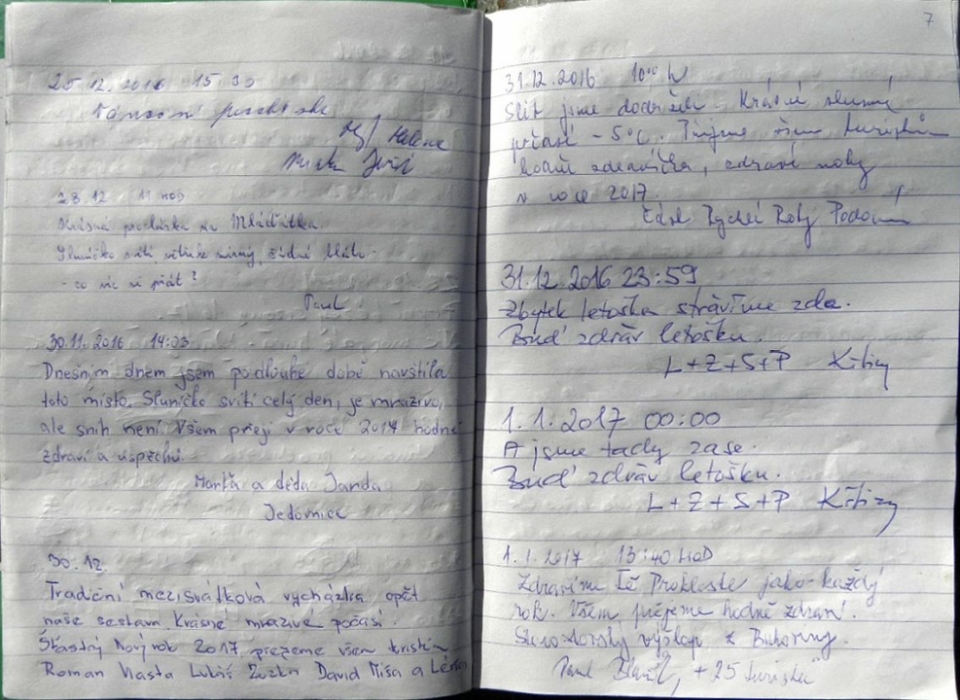 25.12.2016 15
Helena
28.12 11 hod
Krásná procházka na Mláďátka.
Sluníčko svítí, větřík mírný, žádné bláto -
- co víc si přát?
Pavel
30.11.2016 14:03
Dnešním dnem jsem po dlouhé době navštívila
toto místo. Sluníčko svítí celý den, je mrazivo,
ale sníh není. Všem přeji v roce 2017 hodně
zdraví a úspěchů.
Marťa a děda Janda
Jedovnice
30.12.
Tradiční mezisvátková vycházka opět
naše sestava. Krásné mrazivé počasí.
Šťastný Nový rok 2017 přejeme všem turistům
Roman Vlasta Luboš Zuzka David Míša a
7
31.12.2016 10
Slib jsme dodrželi. Krásné slunné
počasí -5°C. Přejeme všem turistům
hodně zdravíčka, zdravé nohy
v roce 2017
Rychlé Roty
31.12.2016 23:59
Zbytek letoška strávíme zde.
Buď zdráv letošku.
L+Z+S+P Křtiny
1.1.2017 00:00
A jsme tady zase.
Buď zdráv letošku.
L+Z+S+P Křtiny
1.1.2017 13:40 HOD
Zdravíme jako každý
rok. Všem přejeme hodně zdraví.
výšlap z Bukoviny.
Pavel + 25 turistů